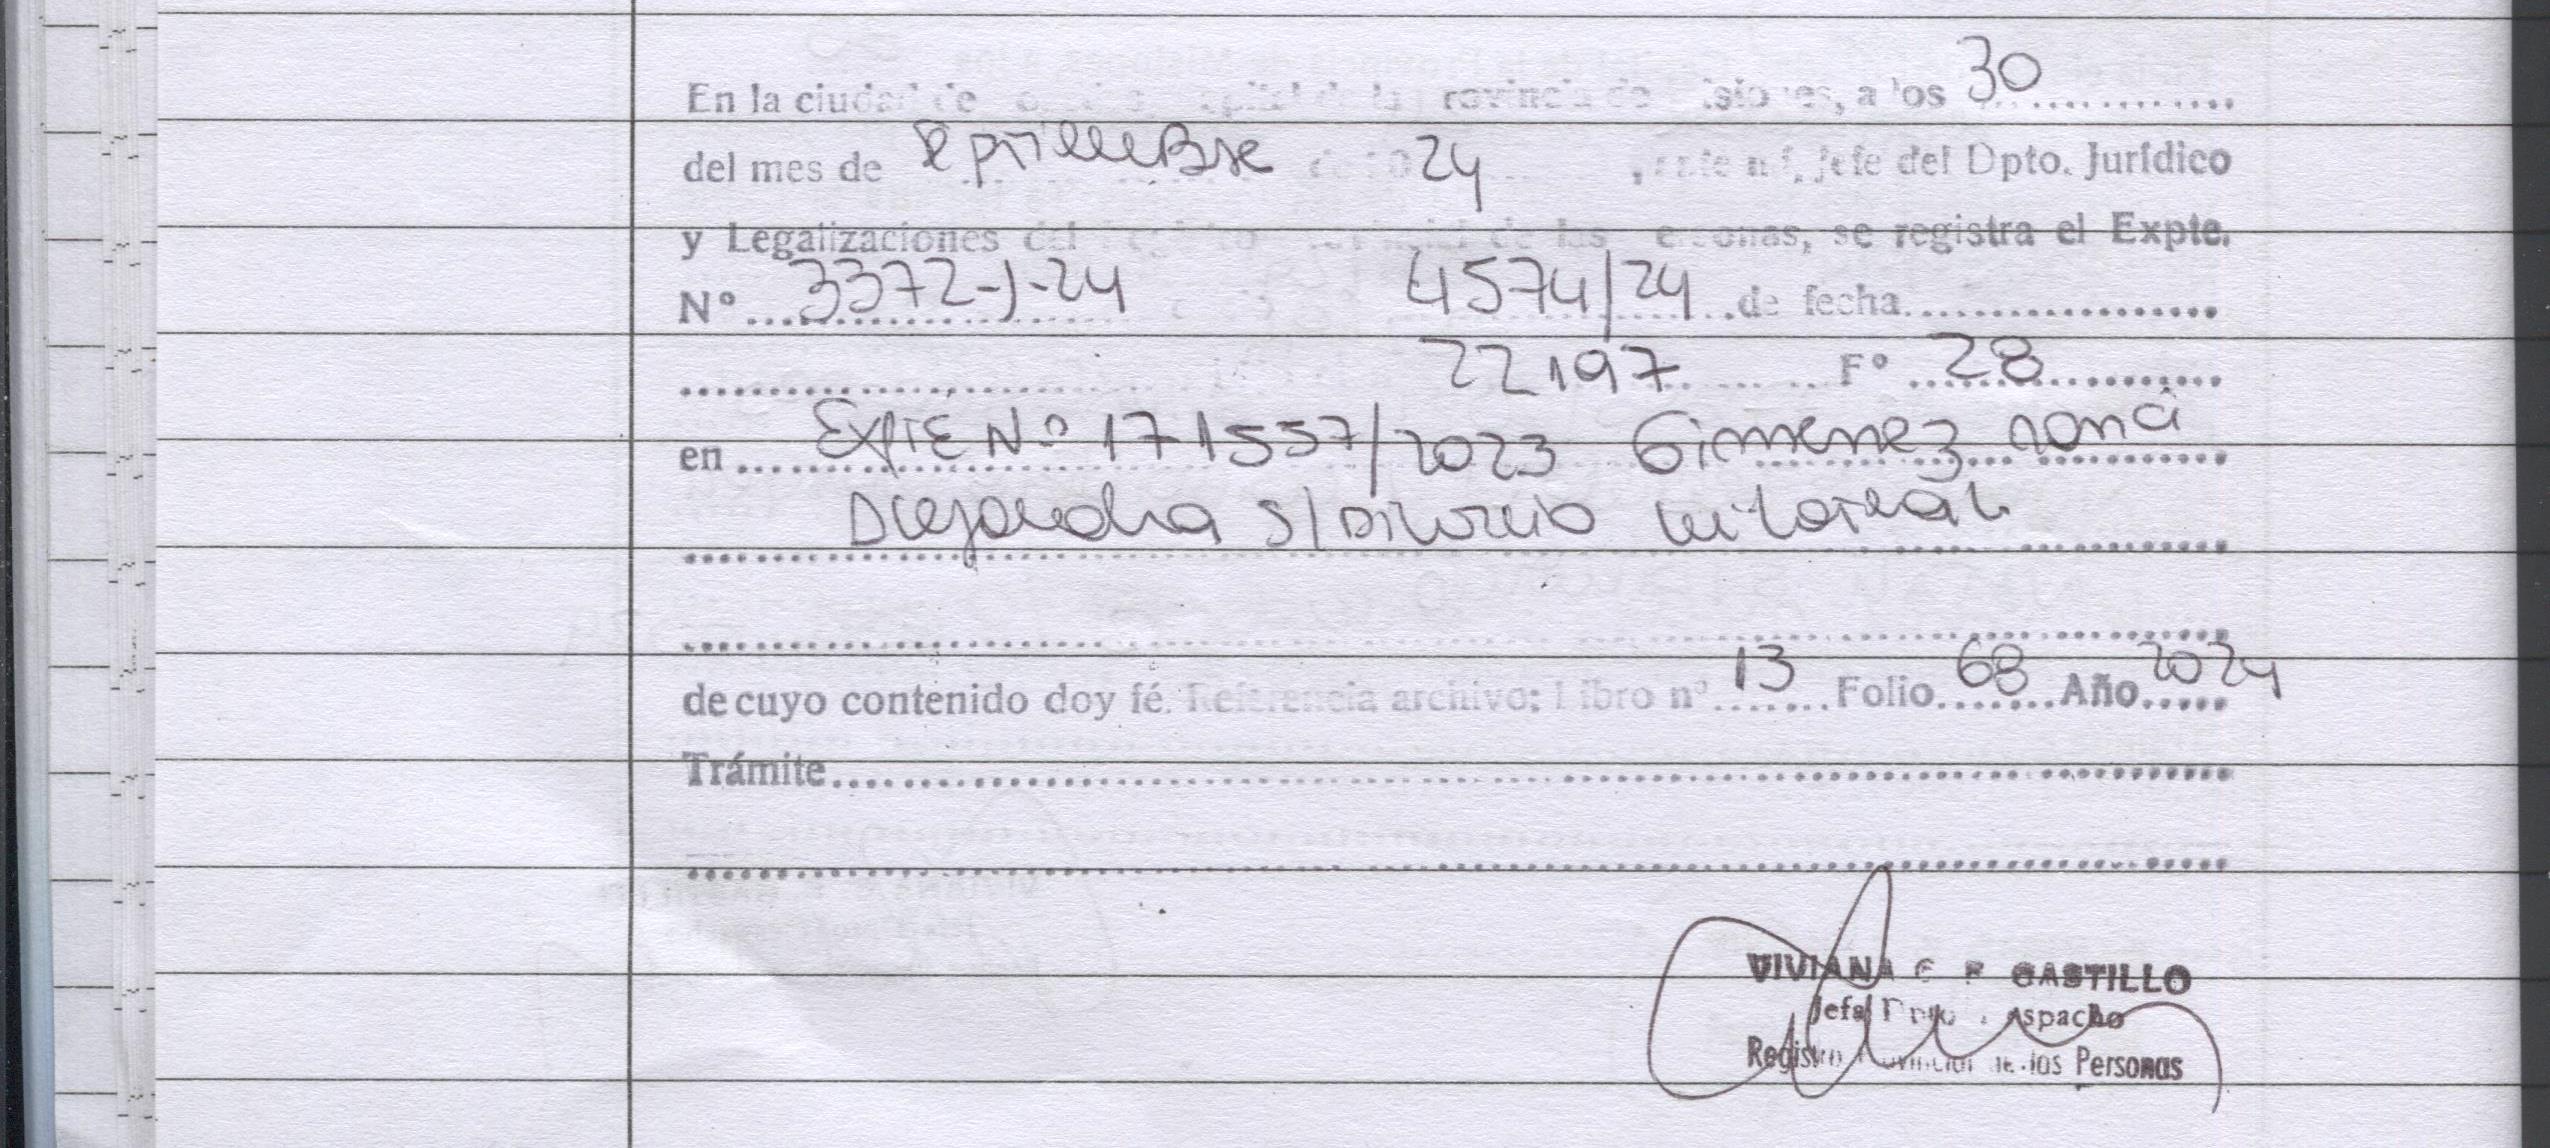 En la ciudad de capital de la rovincia de isiones, a los 30
del mes de septiembre de 20 24, ante mí, Jefe del Dpto. Jurídico
y Legalizaciones del Registro de las ersonas, se registra el Expte.
Nº 3372-J-24 4574/24 de fecha
22197 Fº 28
en Expte Nº 171557/2023 Gimenez
Alejandra s/Divorcio unilateral
de cuyo contenido doy fé. Referencia archivo: Libro nº 13 Folio 68 Año 2024
Trámite
VIVIANA CASTILLO
Jefa Dpto. espacho
Registro Provincial de las Personas